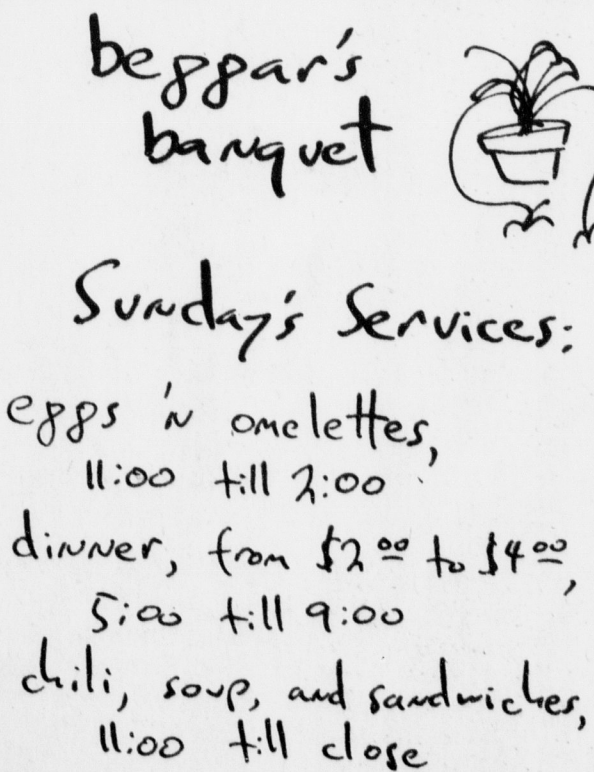 beggar's
banquet
Sunday's Services:
eggs 'n omelettes,
11:00 till 2:00
dinner, from $2.00 to $4.00,
5:00 till 9:00
chili, soup, and sandwiches,
11:00 till close